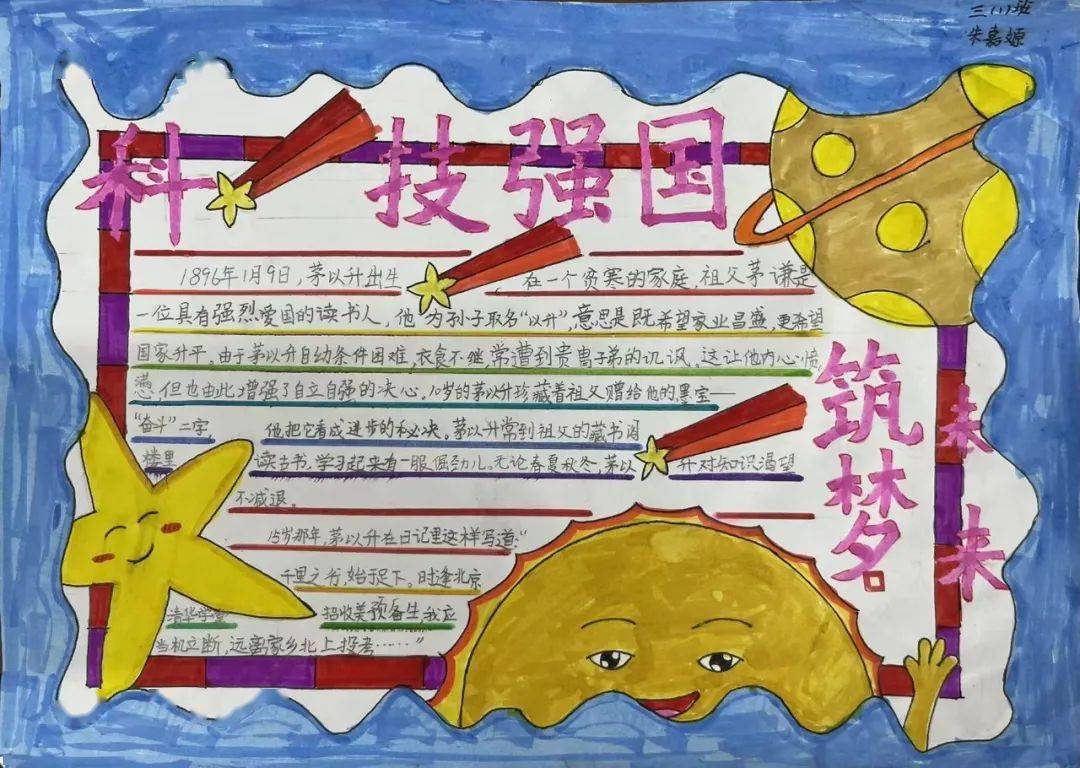 三(1)班
朱嘉嫄
科技强国
筑梦
未来
1896年1月9日，茅以升出生 在一个贫寒的家庭，祖父茅谦是
一位具有强烈爱国的读书人，他为孙子取名“以升”，意思是既希望家业昌盛，更希望
国家升平。由于茅以升自幼条件困难，衣食不继，常遭到贵胄子弟的讥讽。这让他内心愤
懑，但也由此增强了自立自强的决心。10岁的茅以升珍藏着祖父赠给他的墨宝——
“奋斗”二字， 他把它看成进步的秘决。茅以升常到祖父的藏书阁
楼里 读古书，学习起来有一股倔劲儿。无论春夏秋冬，茅以 升对知识渴望
不减退。
15岁那年，茅以升在日记里这样写道：“
千里之行，始于足下。时逢北京
清华学堂 招收美预备生我应
当机立断，远离家乡北上投考……”